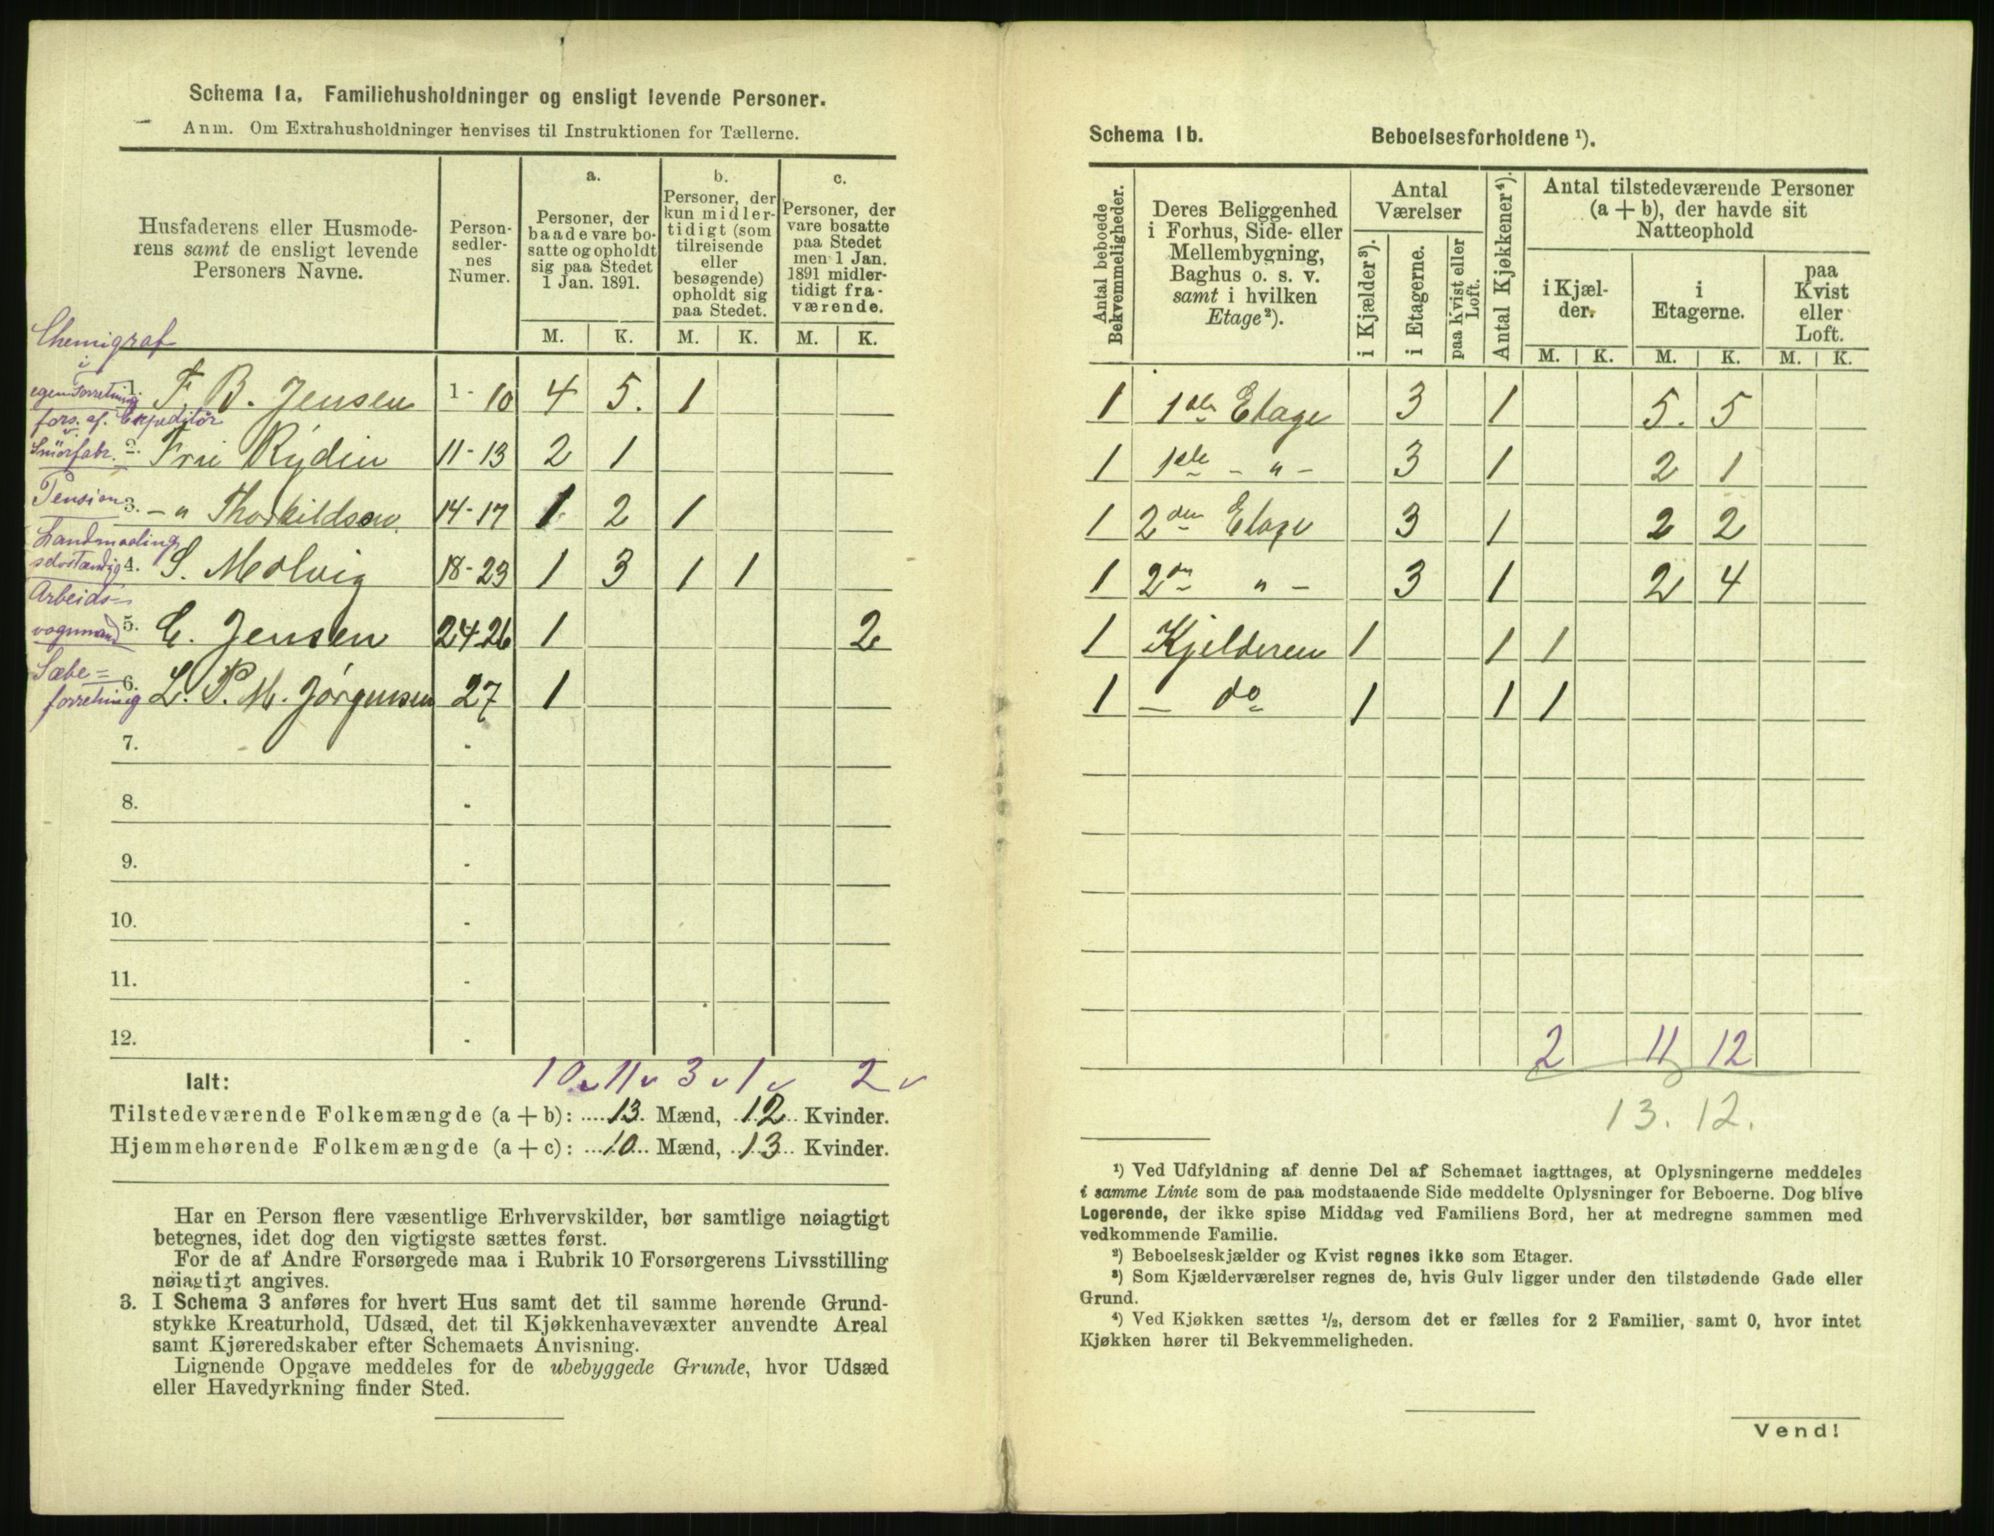 Schema 1a. Familiehusholdninger og ensligt levende Personer.
Anm. Om Extrahusholdninger henvises til Instruktionen for Tællerne.
Husfaderens eller Husmoderens samt de ensligt levende Personers Navne.
Personsedlernes Numer.
a. Personer, der baade vare bosatte og opholdt sig paa Stedet 1 Jan. 1891.
b. Personer, der kun midlertidigt (som tilreisende eller besøgende) opholdt sig paa Stedet.
c. Personer, der vare bosatte paa Stedet men 1 Jan. 1891 midlertidigt fraværende.
M. K. M. K. M. K.
Chemigraf i egen Forretning
1. F. B. Jensen 1-10 4 5. 1
fors. af. Expeditør v. Smörfabr.
2. Fru Rydin 11-13 2 1
Pension
3. - " Thorkildsen 14-17 1 2 1
Landmaaling selvstændig
4. S. Molvig 18-23 1 3 1 1
Arbeidsvognmand
5. C. Jensen 24-26 1 2
Sæbe=forretning
6. L. P. M. Jørgensen 27 1
7. -
8. -
9. -
10. -
11. -
12. -
Ialt: 10 v 11 v 3 v 1 v 2 v
Tilstedeværende Folkemængde (a + b): 13 Mænd, 12 Kvinder.
Hjemmehørende Folkemængde (a + c): 10 Mænd, 13 Kvinder.
Har en Person flere væsentlige Erhvervskilder, bør samtlige nøiagtigt
betegnes, idet dog den vigtigste sættes først.
For de af Andre Forsørgede maa i Rubrik 10 Forsørgerens Livsstilling
nøiagtigt angives.
3. I Schema 3 anføres for hvert Hus samt det til samme hørende Grund-
stykke Kreaturhold, Udsæd, det til Kjøkkenhavevæxter anvendte Areal
samt Kjøreredskaber efter Schemaets Anvisning.
Lignende Opgave meddeles for de ubebyggede Grunde, hvor Udsæd
eller Havedyrkning finder Sted.
Schema 1b. Beboelsesforholdene ¹).
Antal beboede Bekvemmeligheder.
Deres Beliggenhed i Forhus, Side- eller Mellembygning, Baghus o. s. v. samt i hvilken Etage²).
Antal Værelser
i Kjælder³). i Etagerne. paa Kvist eller Loft.
Antal Kjøkkener⁴).
Antal tilstedeværende Personer (a + b), der havde sit Natteophold
i Kjælder. i Etagerne. paa Kvist eller Loft.
M. K. M. K. M. K.
1 1ste Etage 3 1 5. 5
1 1ste - " - 3 1 2 1
1 2den Etage 3 1 2 2
1 2den " - 3 1 2 4
1 Kjelderen 1 1 1
1 - do 1 1 1
2 11 12
13. 12.
¹) Ved Udfyldning af denne Del af Schemaet iagttages, at Oplysningerne meddeles
i samme Linie som de paa modstaaende Side meddelte Oplysninger for Beboerne. Dog blive
Logerende, der ikke spise Middag ved Familiens Bord, her at medregne sammen med
vedkommende Familie.
²) Beboelseskjælder og Kvist regnes ikke som Etager.
³) Som Kjælderværelser regnes de, hvis Gulv ligger under den tilstødende Gade eller
Grund.
⁴) Ved Kjøkken sættes ½, dersom det er fælles for 2 Familier, samt 0, hvor intet
Kjøkken hører til Bekvemmeligheden.
Vend!